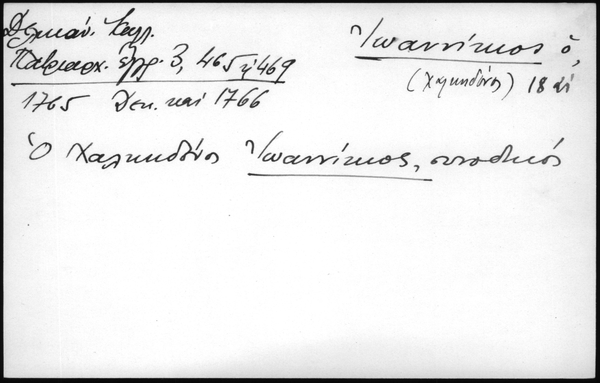 Δελικάν. Καλλ.
Πατριαρχ. ἔγγρ. 3, 465 ἤ 469
1765 Δεκ. καί 1766
Ἰωαννίκιος ὁ,
(Χαλκηδόνος) 18 αἰ
Ὁ Χαλκηδόνος Ἰωαννίκιος, συνοδικός